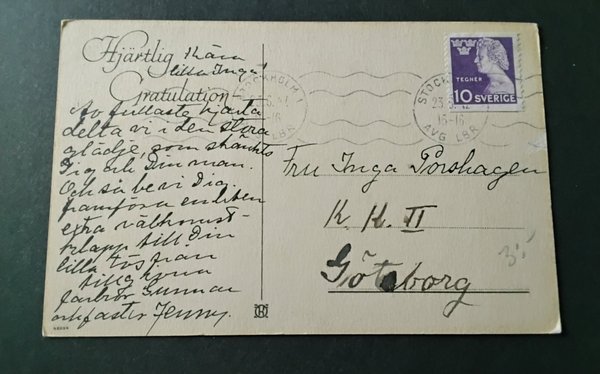 Hjärtlig Kära
lilla Inga!
Gratulation
Av fullaste hjärta
delta vi i den stora
glädje, som skänkts
Dig och Din man.
Och så be vi Dig
framföra en liten
extra välkomst-
klapp till Din
lilla tös från
tillgivna
farbror Gunnar
och faster Jenny.
STOCKHOLM 1
16
LBR
STOCK
23.5.47
16-16
AVG LBR
TEGNÉR
10 SVERIGE
Fru Inga Porshagen
K. K. II
Göteborg
3:-